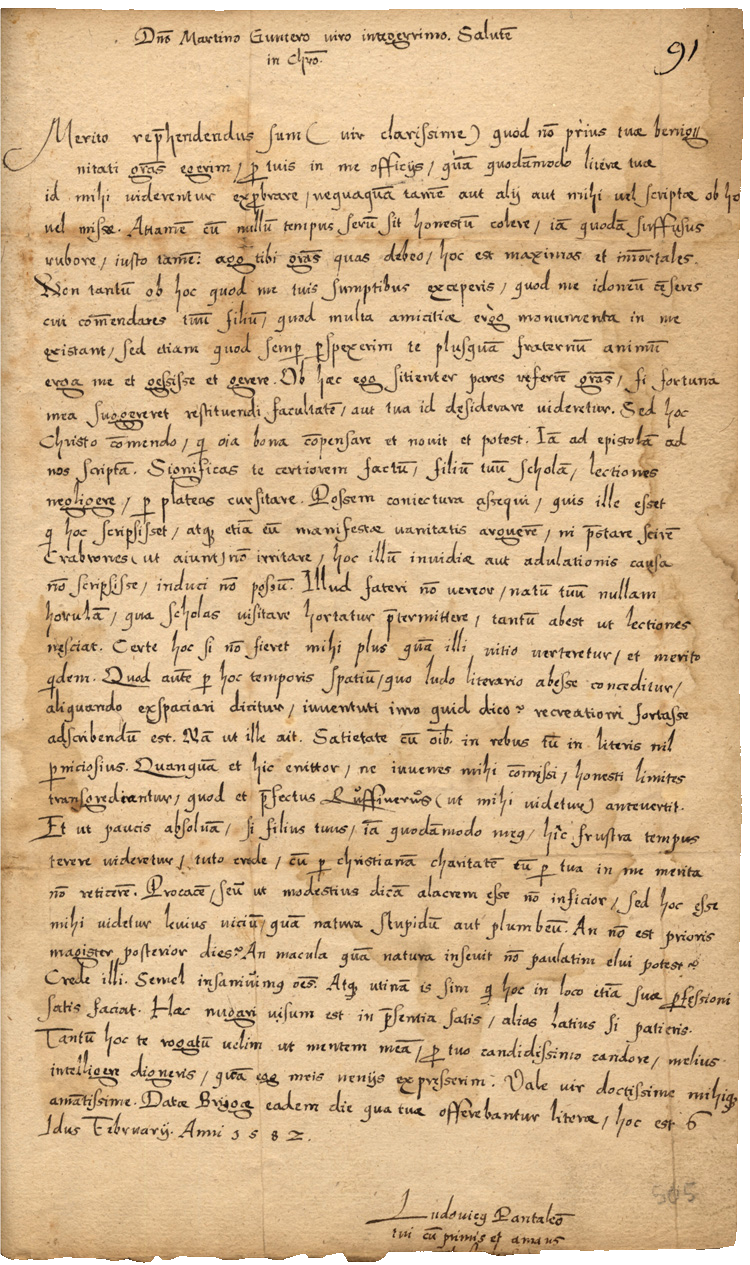 Dno Martino Guntero viro integerrimo. Salutē
in Chro.
91
Merito repħendendus sum (vir clarissime) quod nō prius tuæ benig
nitati grās egerim, ꝓ tuis in me officijs, quā quodāmodo literæ tuæ
id mihi viderentur exprobrare, nequaquā tamē aut alij aut mihi vel scriptæ ob hoc
vel missæ. Attamē cū nullū tempus serū sit honestū colere, iā quodā suffusus
rubore, iusto tamē: ago tibi grās quas debeo, hoc est maximas et imortales.
Non tantū ob hoc quod me tuis sumptibus exceperis, quod me idoneū cēseris
cui comēndares tuū filiū, quod multa amicitiæ ergo monumenta in me
existant, sed etiam quod semꝑ ꝑspexerim te plusquā fraternū animū
erga me et gessisse et gerere. Ob hæc ego sitienter pares referrē grās, si fortuna
mea suggereret restituendi facultatē, aut tua id desiderare videretur. Sed hoc
Christo cōmendo, q oīa bona cōpensare et novit et potest. Iā ad epistolā ad
nos scriptā. Significas te certiorem factū, filiū tuū scholā, lectiones
negligere, ꝑ plateas cursitare. Possem coniectura assequi, quis ille esset
q hoc scripsisset, atqꝫ etiā eū manifestæ vanitatis arguerē, ni pstare scirē
Crabrones (ut aiunt) nō irritare, hoc illū invidiæ aut adulationis causa
nō scripsisse, induci nō possū. Illud fateri nō vereor, natū tuū nullam
horulā, qua scholas visitare hortatur ptermittere, tantū abest ut lectiones
nesciat. Certe hoc si nō fieret mihi plus quā illi vitio verteretur, et merito
qdem. Quod autē ꝑ hoc temporis spatiū, quo ludo literario abesse conceditur,
aliquando exspaciari dicitur, iuventuti imo quid dico? recreationi fortasse
adscribendū est. Nā ut ille ait. Satietate cū oib. in rebus tū in literis nil
ꝑniciosius. Quanquā et hic enittor, ne iuvenes mihi cōmissi, honesti limites
transgrediantur, quod et pfectus Ruffinerus (ut mihi videtur) antevertit.
Et ut paucis absolvā, si filius tuus, iā quodāmodo meꝰ, hic frustra tempus
terere videretur, tuto crede, cū ꝑ christianā charitatē tū ꝑ tua in me merita
nō reticerē. Procacē, seu ut modestius dicā alacrem esse nō inficior, sed hoc esse
mihi videtur levius viciū, quā natura stupidū aut plumbeū. An nō est prioris
magister posterior dies? An macula quā natura insevit nō paulatim elui potest?
Crede illi. Semel insanivimꝰ oēs. Atqꝫ utinā is sim q hoc in loco etiā suæ pfessioni
satis faciat. Hæc nudari visum est in psentia satis, alias latius si patieris.
Tantū hoc te rogatū velim ut mentem meā, ꝓ tuo candidissimo candore, melius
intelligere digneris, quā ego meis nenijs expresserim. Vale vir doctissime mihiqꝫ
amātissime. Datæ Brigæ eadem die qua tuæ offerebantur literæ, hoc est 6
Idus Februarij. Anni 1582.
Ludovicꝰ Pantaleō
tui cū primis et amans